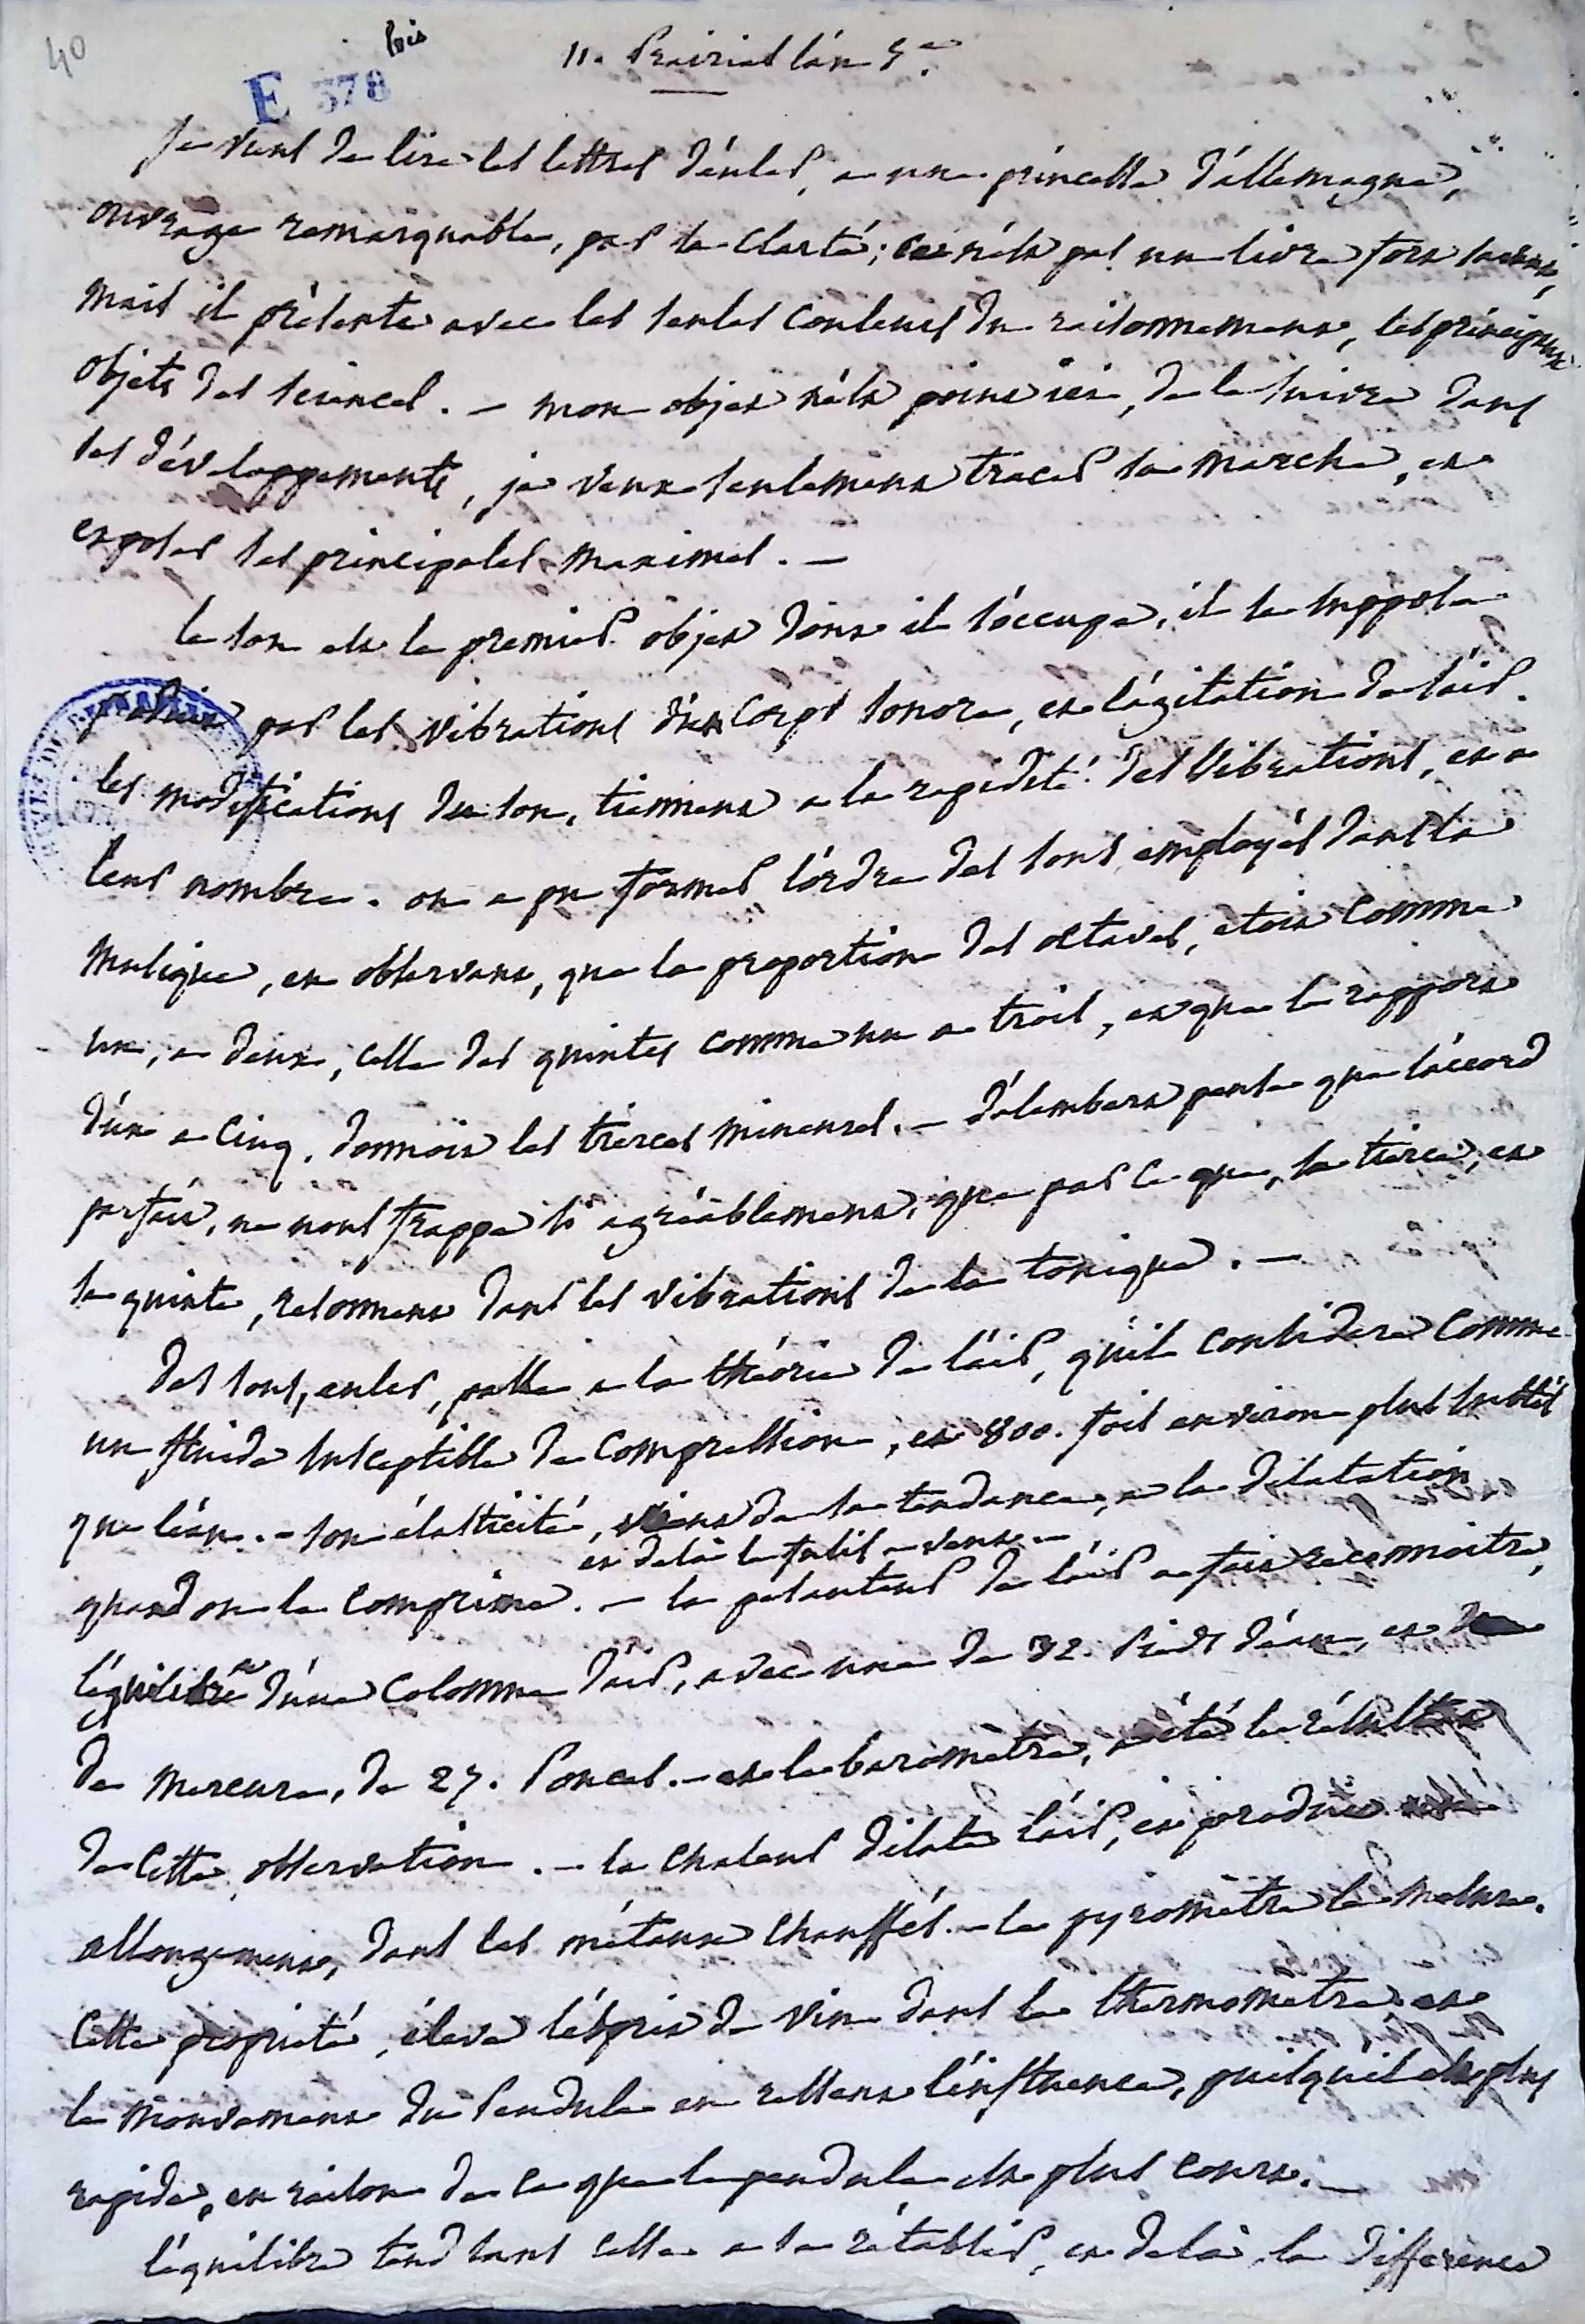 40
bis
E 378
11. Prairial l'an 5.e
Je viens de lire les lettres d'éuler, a une princesse d'allemagne,
ouvrage remarquable, par sa clarté; ce n'ést pas un livre fort savant,
mais il présente avec les seules couleurs du raisonnement, les principaux
objets des sciences. - mon objet n'ést point ici, de le suivre dans
ses déveloopements, je veux seulement tracer sa marche, et
exposer ses principales maximes. -
le son est le premier objet dont il s'occupe, il le suppose
produit par les vibrations d'un corps sonore, et l'agitation de l'air.
les modifications du son, tiennent a la rapidité des vibrations, et a
leur nombre. on a pu former l'ordre des sons employés dans la
musique, en observant, que la proportion des octaves, etoit comme
un, a deux, celle des quintes comme un a trois, et que le rapport
d'un a cinq, donnoit les tierces mineures. - d'alembert pense que l'accord
parfait, ne nous frappe si agréablement, que par ce que, la tierce, et
la quinte, resonnent dans les vibrations de la tonique. -
des sons, euler, passe a la théorie de l'air, qu'il considere comme
un fluide susceptible de compression, et 800. fois environ plus subtil
que l'eau. - son élasticité, vient de sa tendance, a la dilatation
et delà le fusil a vent. -
quand on le comprime. - la pesanteur de l'air a fait reconnoitre,
l'équilibre d'une colonne d'air, avec une de 32. pieds d'eau, et
de mercure, de 27. pouces. - et le barometre, a été le résultat
de cette observation. - la chaleur dilate l'air, et produit
allongement, dans les métaux chauffés. - le pyrométre le mesure.
Cette proprieté, éleve l'ésprit de vin dans le thermometre et
le mouvement du pendule en ressent l'influence, puisqu'il est plus
rapide, en raison de ce que le pendule est plus court. -
l'équilibre tend sans cesse a se rétablir, et delà, la différence